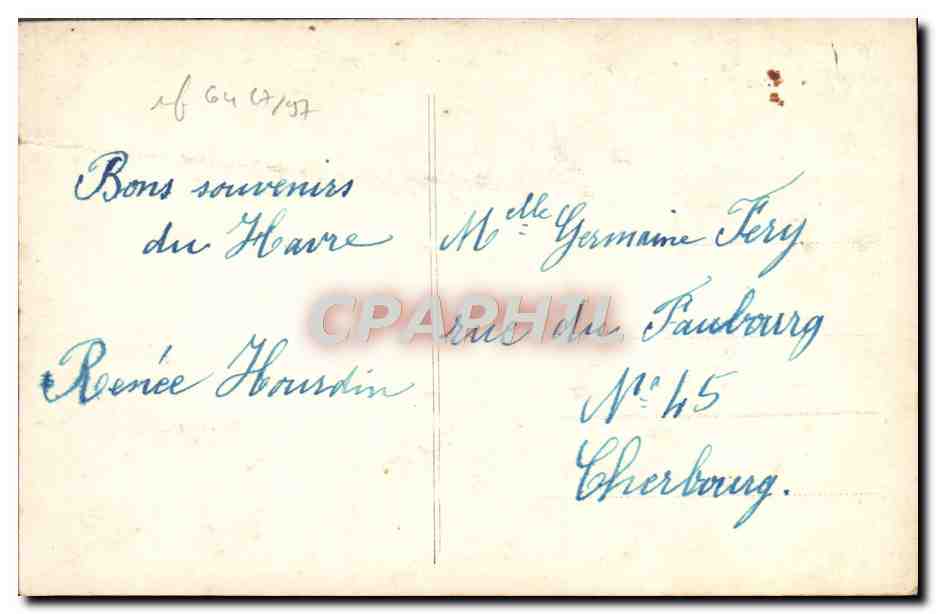 Bons souvenirs
du Havre
Renée Hourdin
Melle Germaine Fery
rue du Faubourg
No 45
Cherbourg.
CPAPHIL